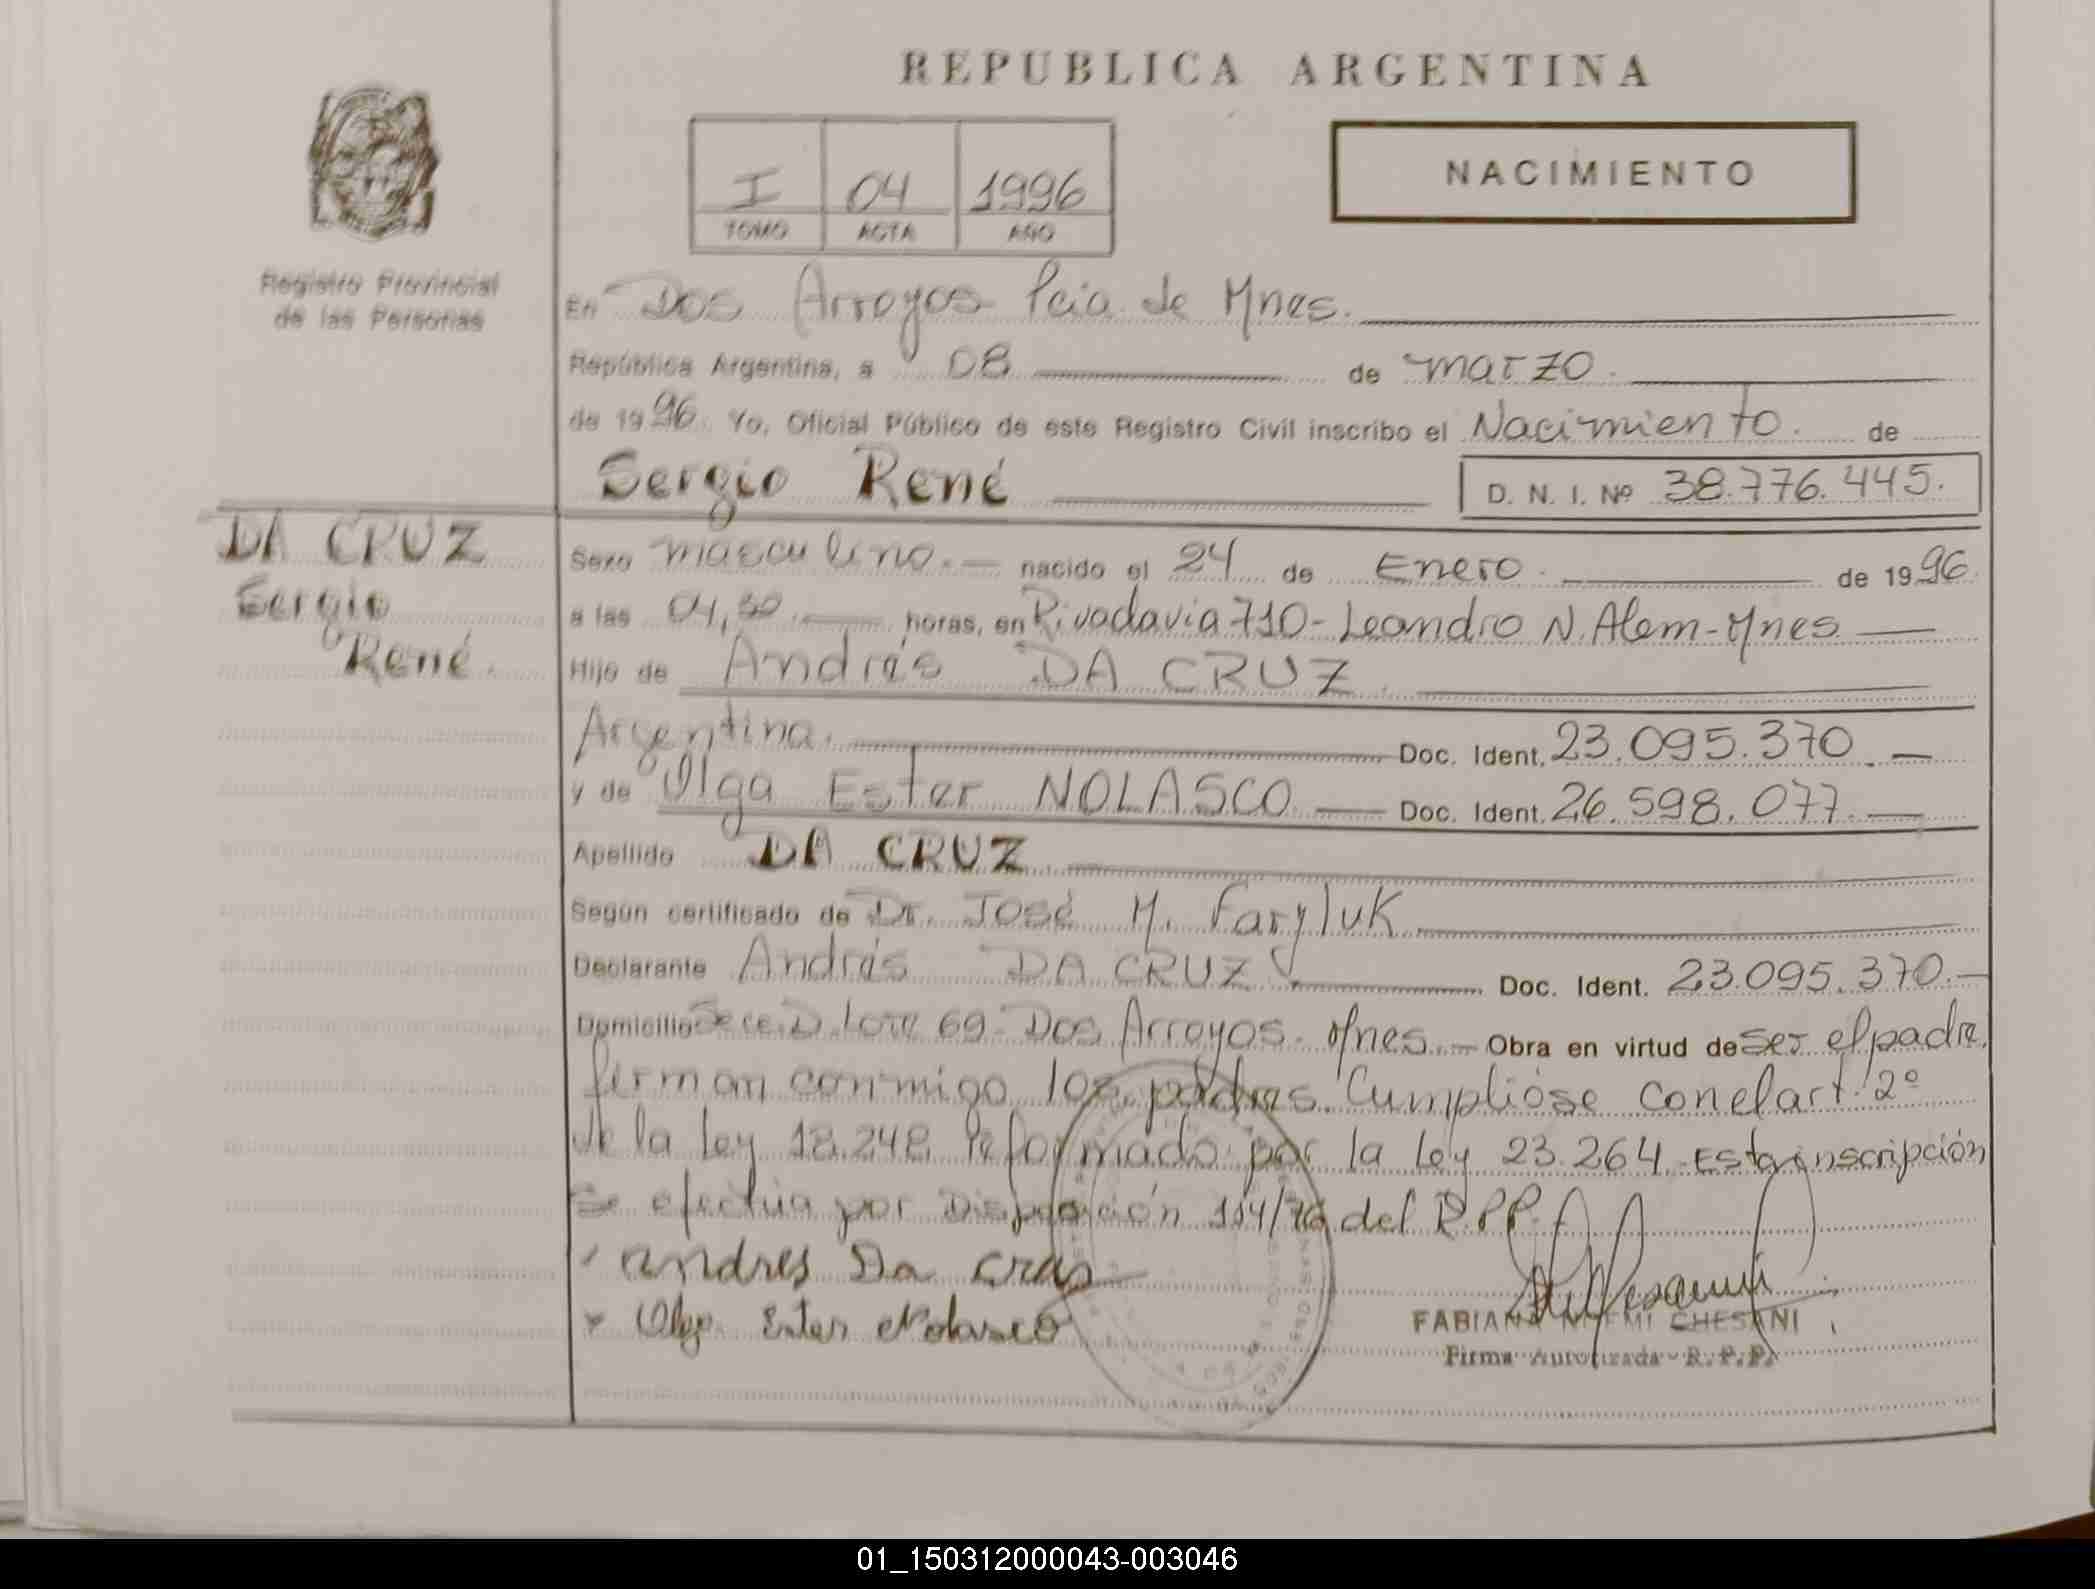 REPUBLICA ARGENTINA
I 04 1996
TOMO ACTA AÑO
NACIMIENTO
Registro Provincial
de las Personas
En Dos Arroyos Pcia. de Mnes.
República Argentina, a 08 de marzo.
de 1996. Yo, Oficial Público de este Registro Civil inscribo el Nacimiento. de
Sergio René D. N. I. Nº 38.776.445.
DA CRUZ
Sergio
René.
Sexo masculino.- nacido el 24 de Enero. de 1996
a las 04,30 horas, en Rivadavia 710-Leandro N. Alem-Mnes
Hijo de Andrés DA CRUZ
Argentina. Doc. Ident. 23.095.370.-
y de Olga Ester NOLASCO Doc. Ident. 26.598.077.-
Apellido DA CRUZ
Según certificado de Dr. José M. Faryluk
Declarante Andrés DA CRUZ Doc. Ident. 23.095.370.-
Domicilio Secc. D. Lote 69- Dos Arroyos. Mnes.- Obra en virtud de ser el padre.
firman conmigo los padres. Cumplióse con el art. 2º
de la Ley 18.248 Reformado por la Ley 23.264. Esta inscripción
se efectúa por Disposición 114/76 del R.P.P.
Andres Da Cruz
x Olga Ester Nolasco
FABIANA NOEMI CHESANI
Firma Autorizada - R. P. P.
01_150312000043-003046